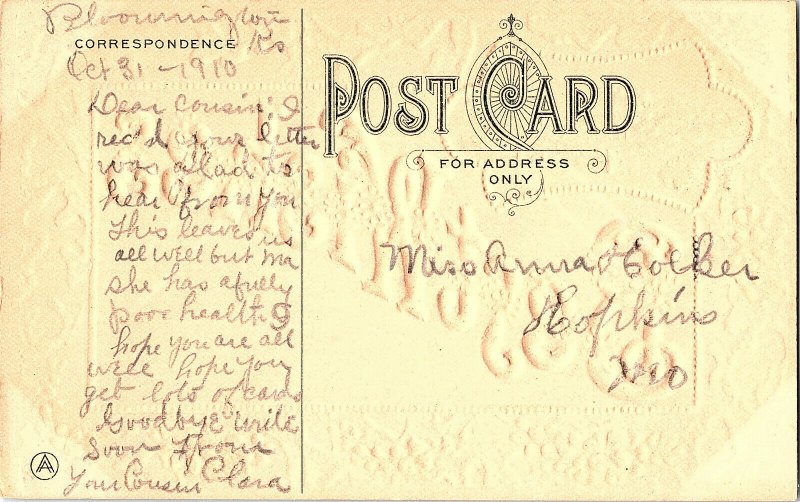 Bloomington
Ks
CORRESPONDENCE
Oct 31 - 1910
Dear Cousin: I
rec'd your letter
was glad to
hear from you
This leaves us
all well but ma
she has afully
poor health I
hope you are all
well hope you
get lots of cards
Goodbye write
Soon From
Your Cousin Clara
POST CARD
FOR ADDRESS
ONLY
Miss Anna
Hopkins
Mo